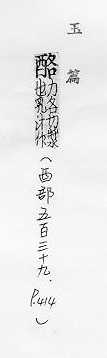 玉篇
酪力各切漿也乳汁作
(酉部五百三十九.P.414)